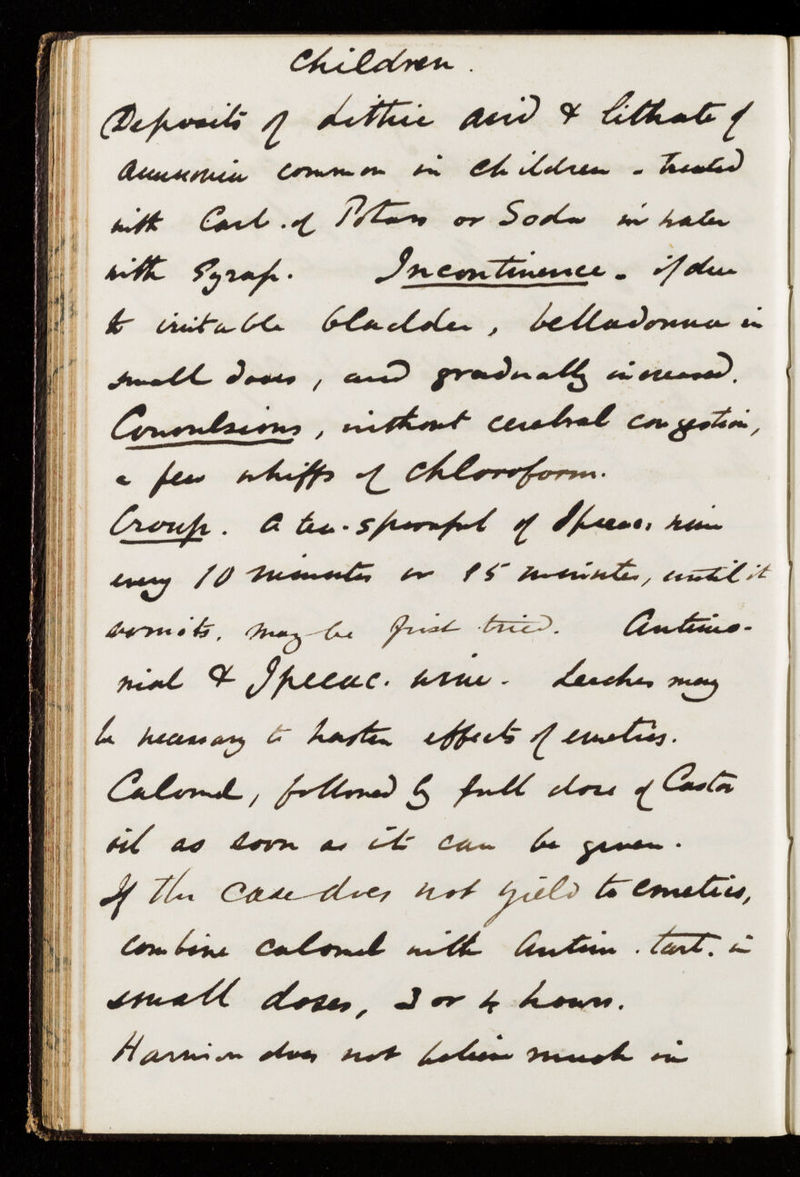 Children.
Deposits of Lithic acid & lithate of
ammonia common in children - treated
with Carb. of Potass or Soda in water
with Syrup. Incontinence - if due
to irritable bladder, belladonna in
small doses, and gradually increased.
Convulsions, without cerebral congestion,
a few whiffs of chloroform.
Croup. A tea-spoonful of Ipecac. wine
every 10 minutes or 15 minutes, until it
vomits, may be first tried. Antimo-
nial & Ipecac. wine. Leeches may
be necessary to hasten effects of emetics.
Calomel, followed by full dose of Castor
oil as soon as it can be given.
If the case does not yield to emetics,
combine calomel with Antim. tart. in
small doses, 3 or 4 hours.
Harrison does not believe much in